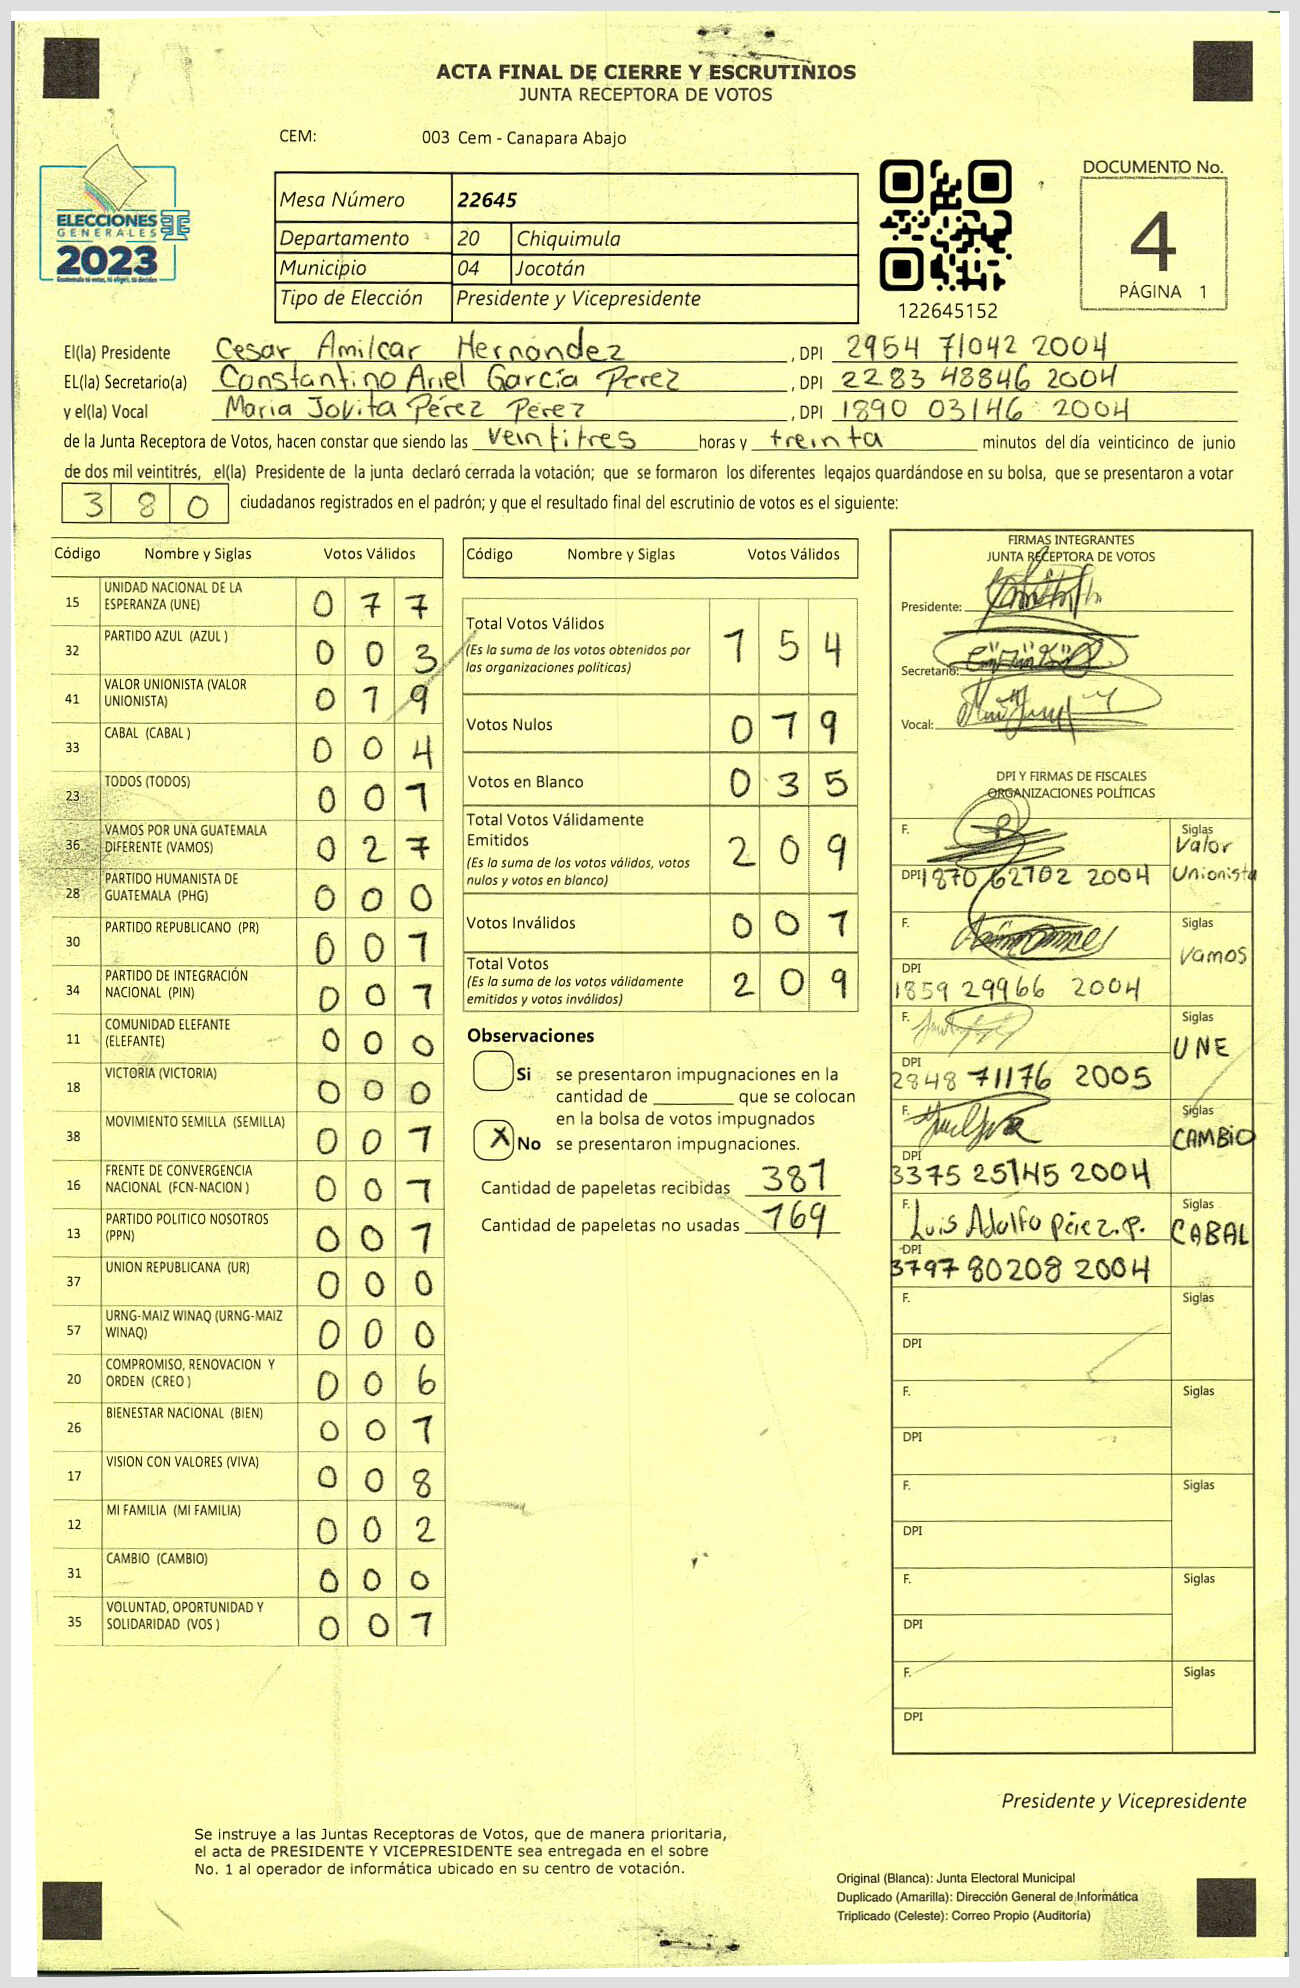 ACTA FINAL DE CIERRE Y ESCRUTINIOS
JUNTA RECEPTORA DE VOTOS
CEM: 003 Cem - Canapara Abajo
ELECCIONES
GENERALES
2023
Mesa Número 22645
Departamento 20 Chiquimula
Municipio 04 Jocotán
Tipo de Elección Presidente y Vicepresidente
122645152
DOCUMENTO No.
4
PÁGINA 1
El(la) Presidente Cesar Amilcar Hernández , DPI 2954 71042 2004
EL(la) Secretario(a) Constantino Ariel García Perez , DPI 2283 48846 2004
y el(la) Vocal Maria Jovita Pérez Perez , DPI 1890 03146 2004
de la Junta Receptora de Votos, hacen constar que siendo las veintitres horas y treinta minutos del día veinticinco de junio
de dos mil veintitrés, el(la) Presidente de la junta declaró cerrada la votación; que se formaron los diferentes legajos guardándose en su bolsa, que se presentaron a votar
380 ciudadanos registrados en el padrón; y que el resultado final del escrutinio de votos es el siguiente:
Código Nombre y Siglas Votos Válidos
15 UNIDAD NACIONAL DE LA
ESPERANZA (UNE) 0 7 7
32 PARTIDO AZUL (AZUL ) 0 0 3
41 VALOR UNIONISTA (VALOR
UNIONISTA) 0 1 9
33 CABAL (CABAL ) 0 0 4
23 TODOS (TODOS) 0 0 1
36 VAMOS POR UNA GUATEMALA
DIFERENTE (VAMOS) 0 2 7
28 PARTIDO HUMANISTA DE
GUATEMALA (PHG) 0 0 0
30 PARTIDO REPUBLICANO (PR) 0 0 1
34 PARTIDO DE INTEGRACIÓN
NACIONAL (PIN) 0 0 1
11 COMUNIDAD ELEFANTE
(ELEFANTE) 0 0 0
18 VICTORIA (VICTORIA) 0 0 0
38 MOVIMIENTO SEMILLA (SEMILLA) 0 0 1
16 FRENTE DE CONVERGENCIA
NACIONAL (FCN-NACION ) 0 0 1
13 PARTIDO POLITICO NOSOTROS
(PPN) 0 0 1
37 UNION REPUBLICANA (UR) 0 0 0
57 URNG-MAIZ WINAQ (URNG-MAIZ
WINAQ) 0 0 0
20 COMPROMISO, RENOVACION Y
ORDEN (CREO ) 0 0 6
26 BIENESTAR NACIONAL (BIEN) 0 0 1
17 VISION CON VALORES (VIVA) 0 0 8
12 MI FAMILIA (MI FAMILIA) 0 0 2
31 CAMBIO (CAMBIO) 0 0 0
35 VOLUNTAD, OPORTUNIDAD Y
SOLIDARIDAD (VOS ) 0 0 1
Código Nombre y Siglas Votos Válidos
Total Votos Válidos 1 5 4
(Es la suma de los votos obtenidos por
las organizaciones políticas)
Votos Nulos 0 1 9
Votos en Blanco 0 3 5
Total Votos Válidamente
Emitidos 2 0 9
(Es la suma de los votos válidos, votos
nulos y votos en blanco)
Votos Inválidos 0 0 1
Total Votos 2 0 9
(Es la suma de los votos válidamente
emitidos y votos inválidos)
Observaciones
Si se presentaron impugnaciones en la
cantidad de ________ que se colocan
en la bolsa de votos impugnados
X No se presentaron impugnaciones.
Cantidad de papeletas recibidas 381
Cantidad de papeletas no usadas 169
FIRMAS INTEGRANTES
JUNTA RECEPTORA DE VOTOS
Presidente:
Secretario:
Vocal:
DPI Y FIRMAS DE FISCALES
ORGANIZACIONES POLÍTICAS
F. Siglas
Valor
DPI 1870 62702 2004 Unionista
F. Siglas
Vamos
DPI
1859 29966 2004
F. Siglas
UNE
DPI
2848 71176 2005
F. Siglas
CAMBIO
DPI
3375 25145 2004
F. Luis Adolfo Pérez.P. Siglas
CABAL
DPI
3797 80208 2004
F. Siglas
DPI
F. Siglas
DPI
F. Siglas
DPI
F. Siglas
DPI
F. Siglas
DPI
Presidente y Vicepresidente
Se instruye a las Juntas Receptoras de Votos, que de manera prioritaria,
el acta de PRESIDENTE Y VICEPRESIDENTE sea entregada en el sobre
No. 1 al operador de informática ubicado en su centro de votación.
Original (Blanca): Junta Electoral Municipal
Duplicado (Amarilla): Dirección General de Informática
Triplicado (Celeste): Correo Propio (Auditoría)